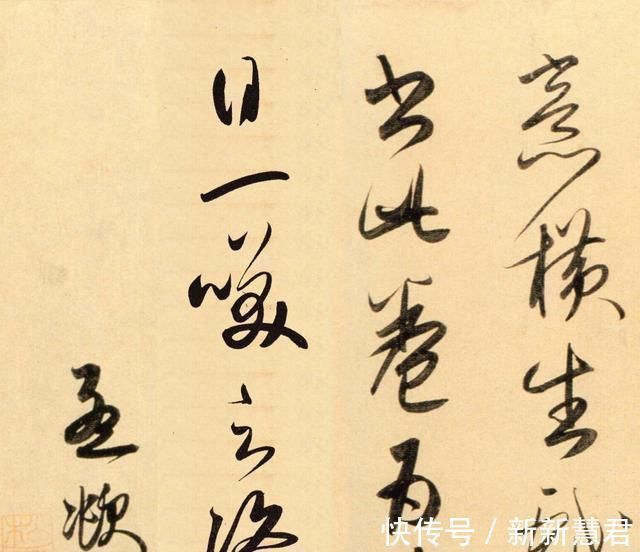 意横生
书此卷为
日一
孟頫
快传号／新新慧君